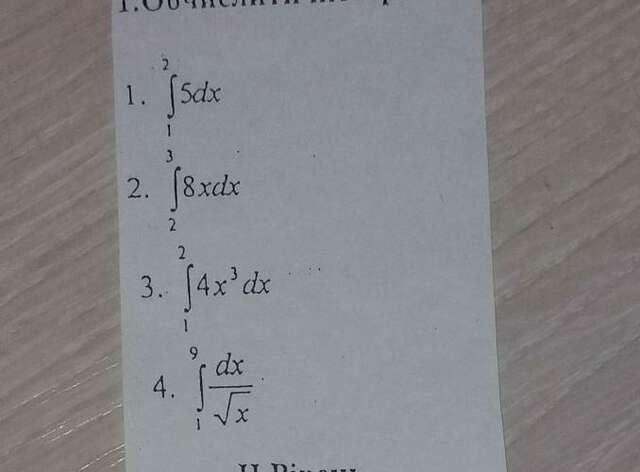 1. ∫₁² 5dx
2. ∫₂³ 8xdx
3. ∫₁² 4x³dx
4. ∫₁⁹ dx/√x